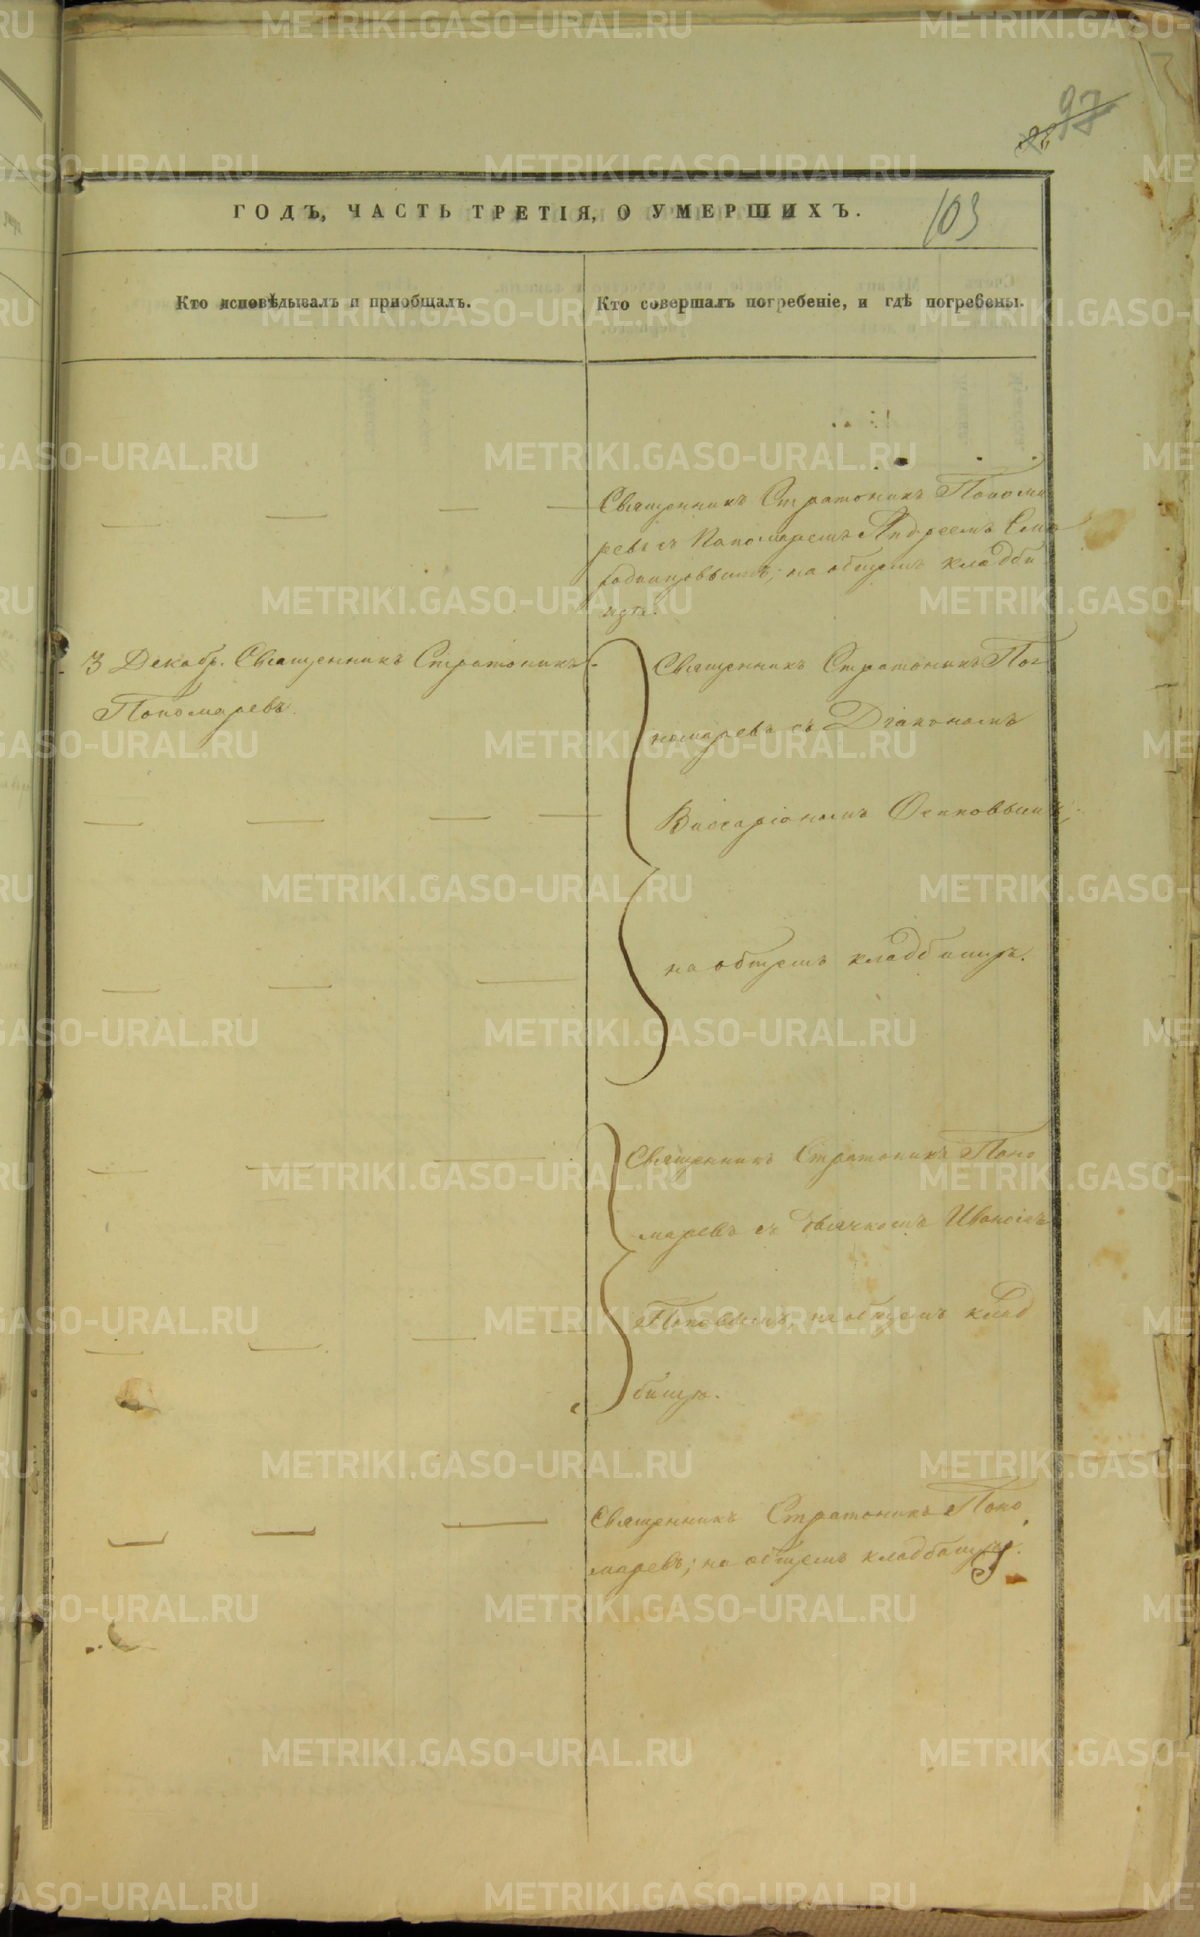 97
103
ГОДЪ, ЧАСТЬ ТРЕТІЯ, О УМЕРШИХЪ.
Кто исповѣдывалъ и пріобщалъ.
Кто совершалъ погребеніе, и гдѣ погребены.
Священникъ Стратоникъ Понома
ревъ съ Пономаремъ Андреемъ
на общемъ кладби
щѣ.
3 Декабр. Священникъ Стратоникъ
Пономаревъ.
Священникъ Стратоникъ По
номаревъ съ Діакономъ
Виссаріономъ Осиповымъ,
на общемъ кладбищѣ.
Священникъ Стратоникъ Поно
маревъ съ Дьячкомъ Иваномъ
Поповымъ, на общемъ клад
бищѣ.
Священникъ Стратоникъ Поно
маревъ; на общемъ кладбищѣ.
METRIKI.GASO-URAL.RU